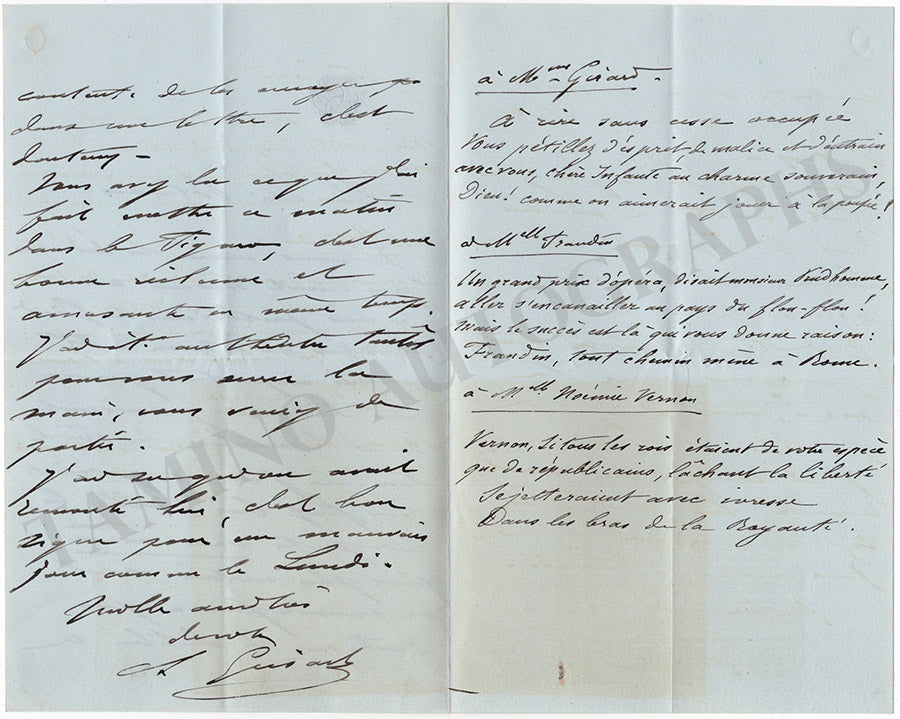 contente de les envoyer
dans une lettre, c'est
Vous avez lu ce que j'ai
fait mettre ce matin
dans le Figaro, c'est une
bonne réclame et
amusante en même temps.
J'ai été au théâtre tantôt
pour vous serrer la
main, vous veniez de
partir.
J'ai su qu'on avait
remonté hier, c'est bon
signe pour un mauvais
jour comme le Lundi.
Mille amitiés
A Girard
à Mme Girard.
À rire sans cesse occupée
Vous pétillez d'esprit, de malice et d'entrain
avec vous, chère Infante au charme souverain,
Dieu! comme on aimerait jouer à la poupée!
à Mlle Frandin
Un grand prix d'opéra, disait monsieur Prudhomme,
aller s'encanailler au pays du flon-flon!
Mais le succès est là qui vous donne raison:
Frandin, tout chemin mène à Rome.
à Mlle Noémie Vernon
Vernon, si tous les rois étaient de votre espèce
que de républicains, lâchant la liberté
Se jetteraient avec ivresse
Dans les bras de la Royauté.
TAMINO AUTOGRAPHS